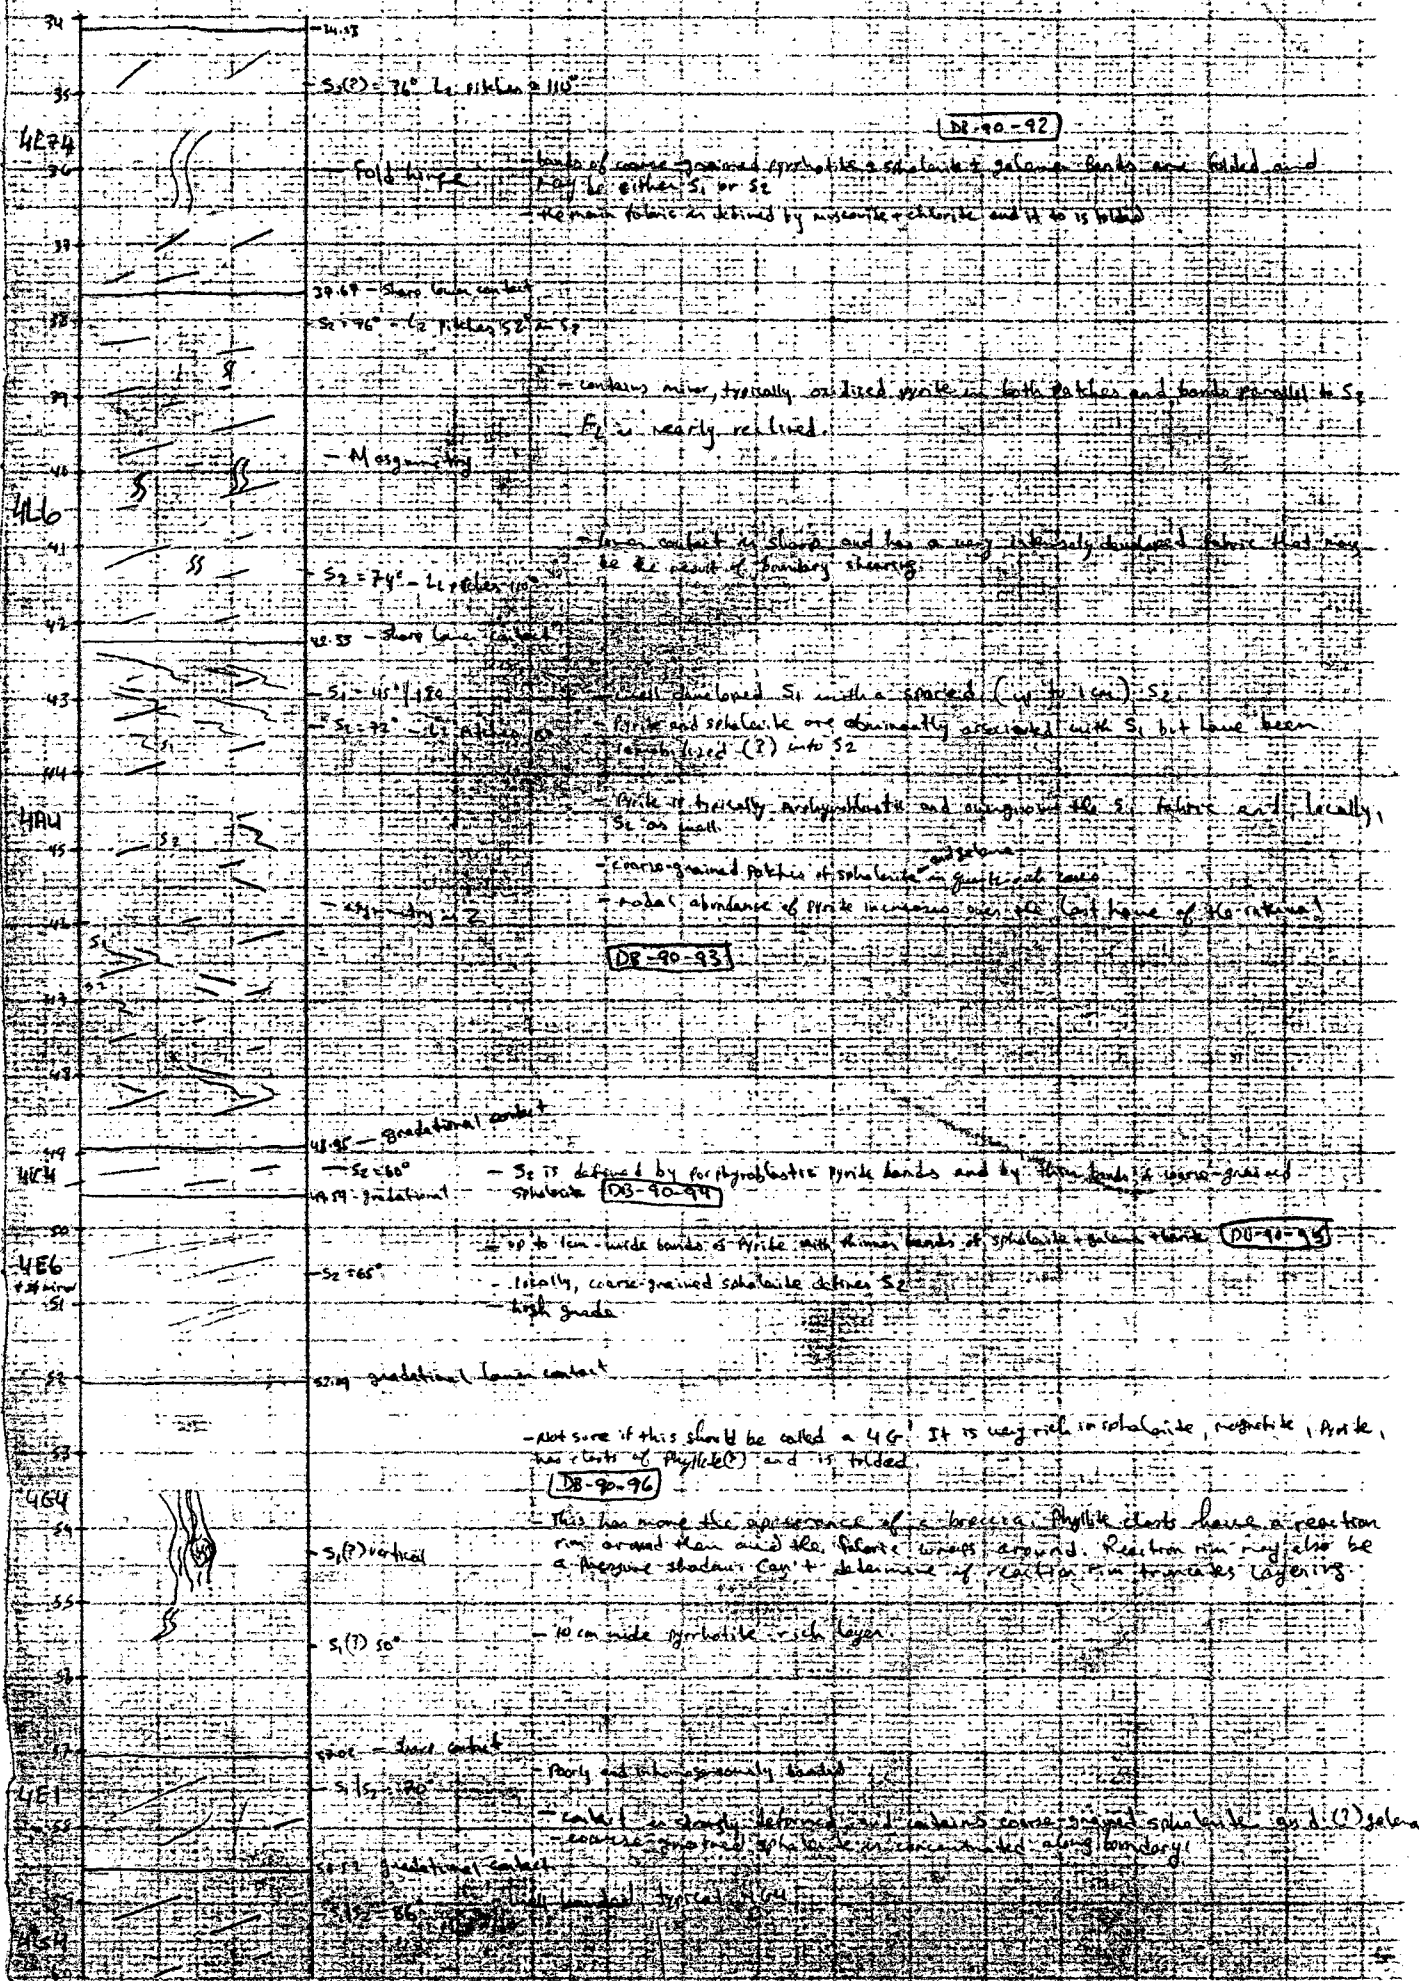 34
34.33
- S2(?) = 36° L2 pitches @ 110°
35
DB-90-92
4E74
- Fold hinge
- bands of coarse-grained pyrrhotite + sphalerite + galena. Bands are folded and
36
may be either S1 or S2
- the main fabric is defined by muscovite + chlorite and it to is folded
37
- Sharp lower contact
38
L2 pitches 52° in S2
S1
- contains minor, typically oxidized pyrite in both patches and bands parallel to S2
39
F2 is nearly
- M asymmetry
40
4L6
- lower contact is sharp and has a very intensely developed fabric that may
41
be the result of boundary shearing
- S2 = 74° - L2 pitches 110°
42
42.33 - Sharp lower contact
- S1 = 45°/180
- well developed S1 with a spaced (up to 1cm) S2
43
- S2 = 72° - L2 pitches
- Pyrite and sphalerite are dominantly associated with S1 but have been
S1
remobilized (?) into S2
44
- Pyrite is typically porphyroblastic and overgrows the S1 fabric and, locally,
4A4
S2 as well.
S2
45
and galena
- coarse-grained patches of sphalerite in quartz-rich zones
- asymmetry is Z
- modal abundance of pyrite increases over the last
46
S1
DB-90-93
S2
47
48
48.95 - gradational contact
49
4K4
- S2 = 60°
- S2 is defined by porphyroblastic pyrite bands and by thin bands of coarse-grained
49.59 - gradational
sphalerite DB-90-94
50
- up to 1cm-wide bands of pyrite with thinner bands of sphalerite + galena + barite DB-90-95
4E6
- S2 = 65°
- locally, coarse-grained sphalerite defines S2
51
- high grade
52
52.09 gradational lower contact
- Not sure if this should be called a 4G. It is very rich in sphalerite, magnetite, pyrite,
53
has clasts of phyllite(?) and is folded.
DB-90-96
4G4
- This has more the appearance of a breccia. Phyllite clasts have a reaction
54
rim around them and the fabric wraps around. Reaction rim may also be
- S1(?) vertical
a pressure shadow. Can't determine if reaction rim truncates layering.
55
- S1(?) 50°
- 10 cm wide pyrrhotite rich layer
56
57
57.02 - sharp contact
- Poorly and inhomogeneously banded
- S1/S2 = 70°
4E1
- contact is strongly deformed and contains coarse-grained sphalerite and (?) galena
58
- coarse-grained sphalerite is concentrated along boundary!
gradational contact
59
banded typical 4G4
4G4
60